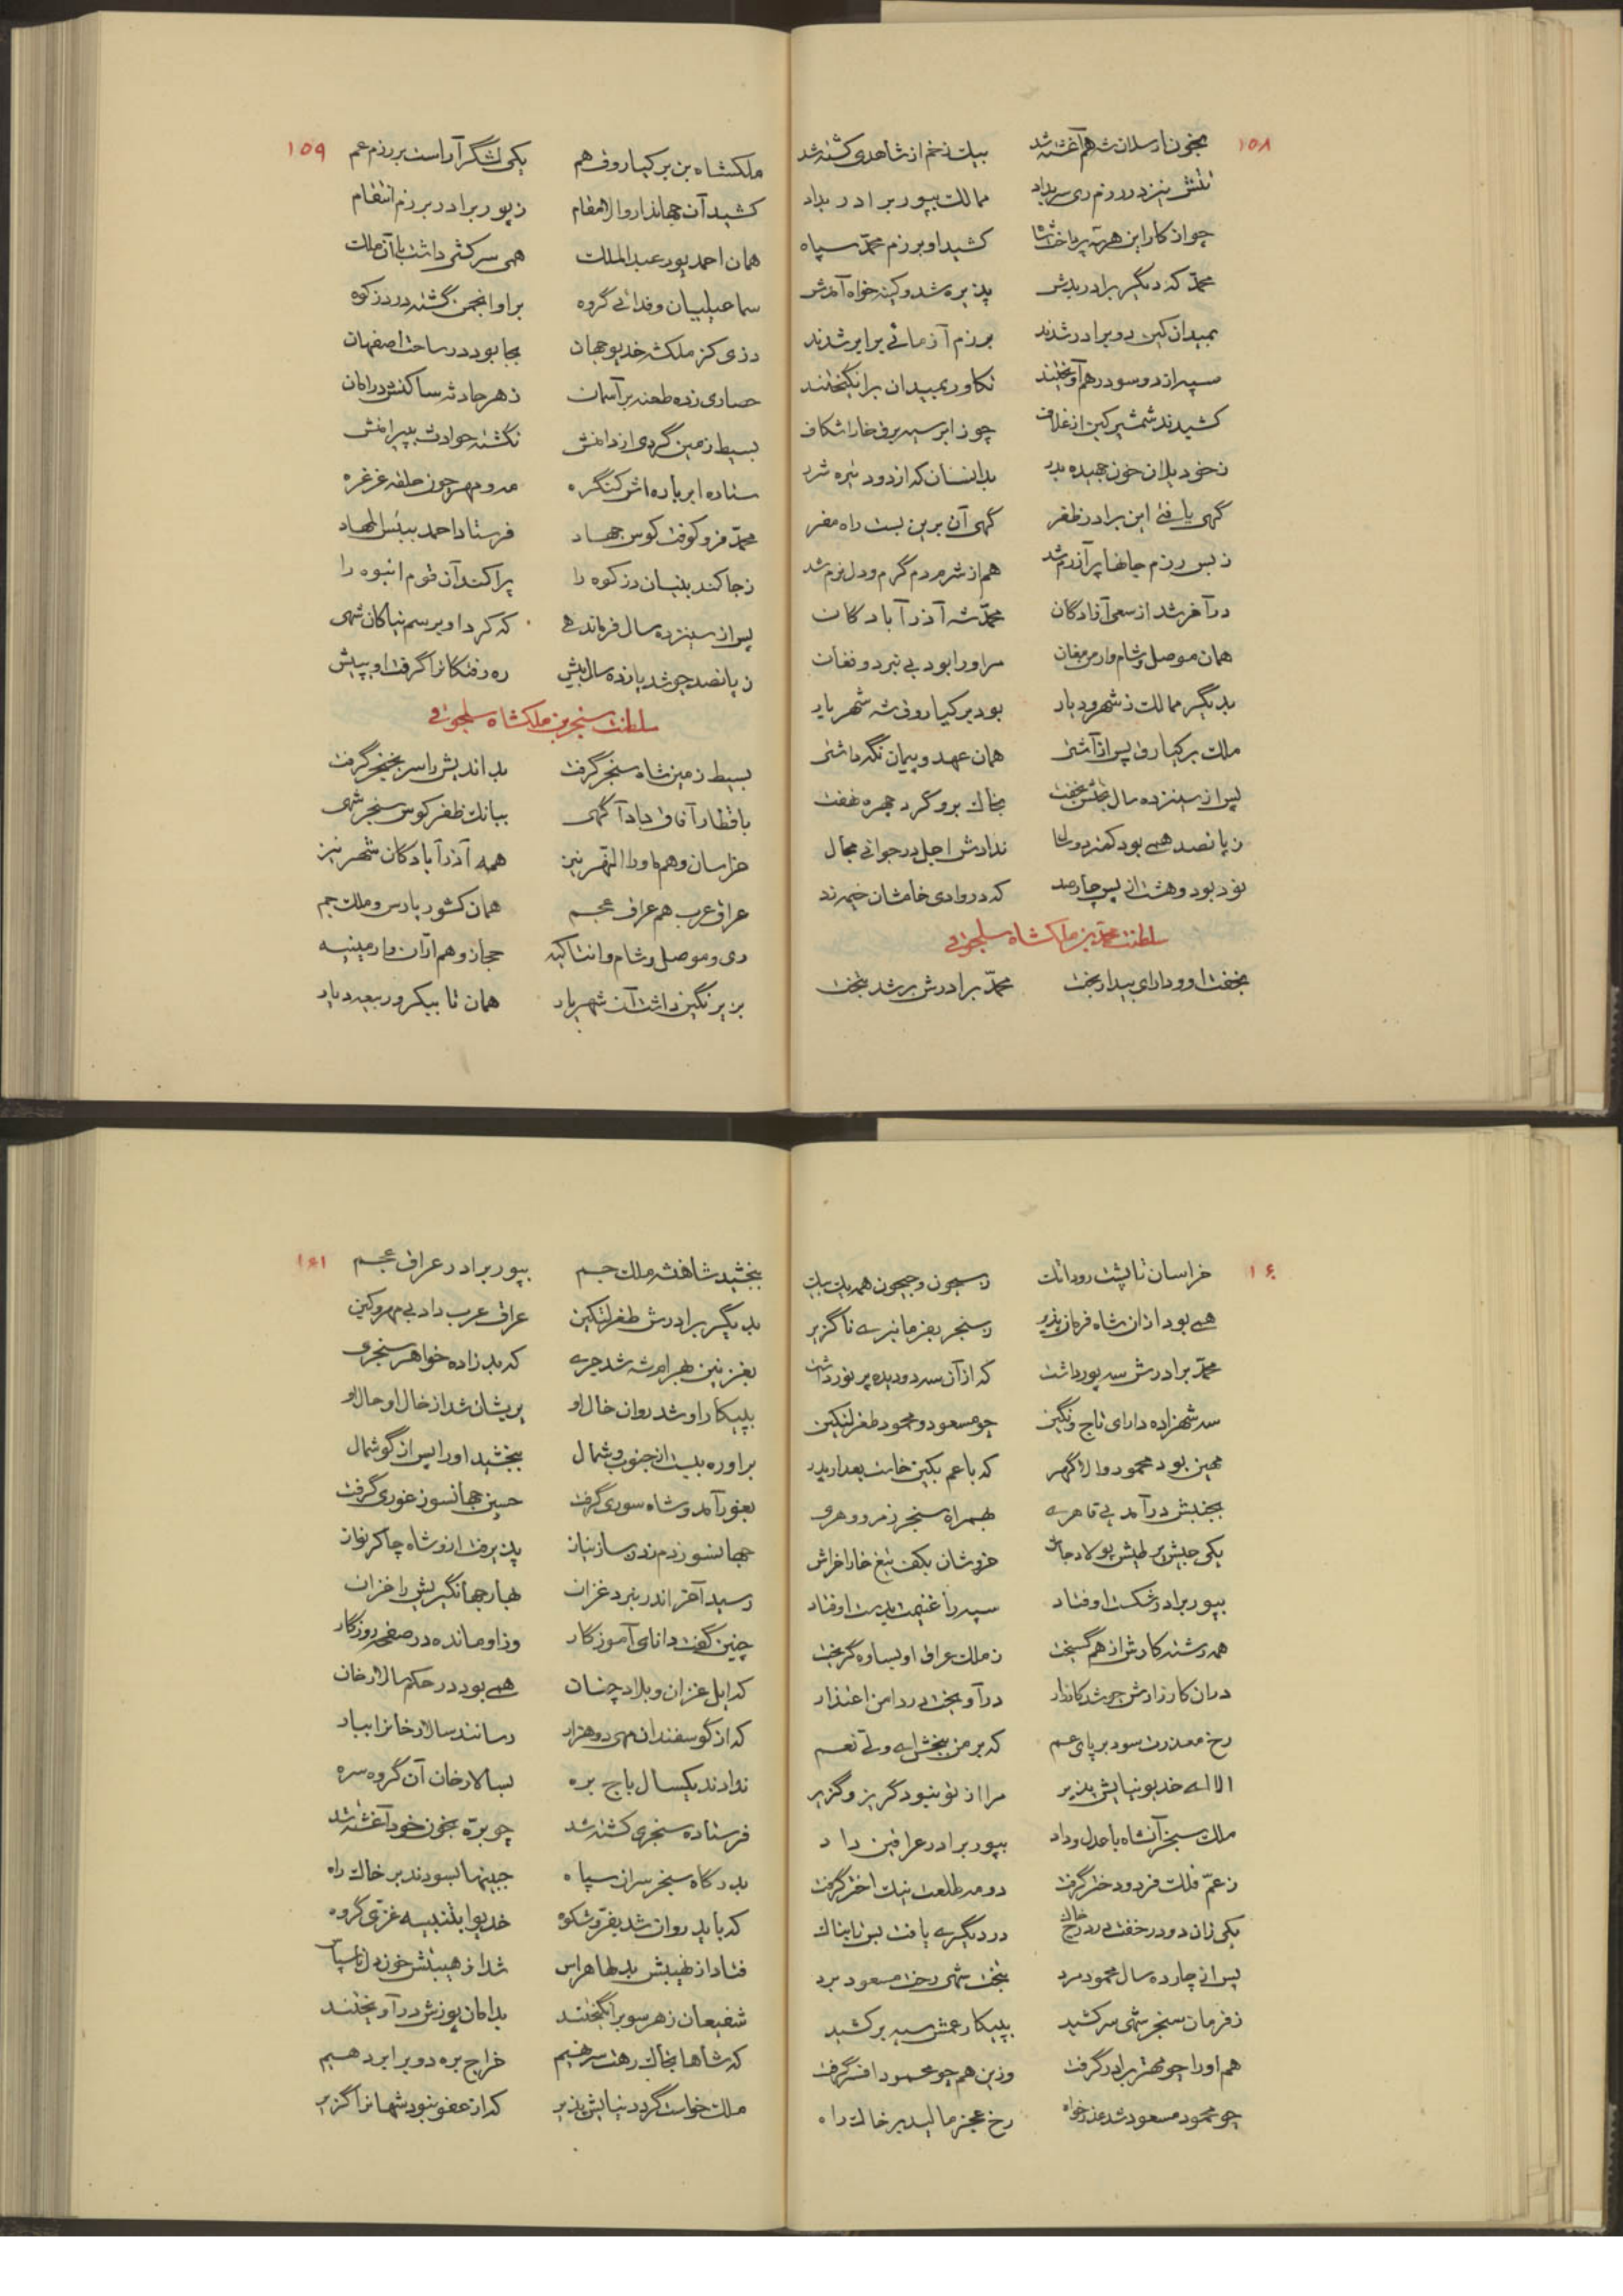 ۱۵۸
بخون ارسلان شه هم آغشته شد بیک زخم از شاهدی کشته شد
تتش نیز در رزم ری سر بداد ممالک بپور برادر بداد
چو از کار این هر سه پرداخت شاه کشید او برزم محمد سپاه
محمد که دیگر برادر بدش پذیره شد و کینه خواه آمدش
بمیدان کین دو برادر شدند برزم آزمائی برابر شدند
سپه از دو سو در هم آویختند تکاور بمیدان برانگیختند
کشیدند شمشیر کین از غلاف چو ز ابر سیه برق خارا شکاف
ز خود یلان خون جهیده بدر بدانسان که از دود تیره شرر
گهی یافتی این برادر ظفر گهی آن برین بست راه مفر
ز بس رزم جانها پر آزرم شد هم از شرم دم گرم و دل نرم شد
در آخر شد از سعی آزادگان محمد شه آذرآبادگان
همان موصل و شام وارمن مغان مر او را بود بی نبرد و فغان
بدیگر ممالک ز شهر و دیار بود برکیارق شه شهریار
ملک برکیارق پس از آشتی همان عهد و پیمان نگه داشتی
پس از سیزده سال بختش بخفت بخاک بروگرد چهره نهفت
ز پانصد همی بود کمتر دو سال ندادش اجل در جوانی مجال
نود بود و هشت از پس چارصد که در وادی خامشان خیمه زد
سلطنت محمد بن ملکشاه سلجوقی
بخفت او و دارای بیدار بخت محمد برادرش بر شد بتخت
۱۵۹
ملکشاه بن برکیاروق هم یکی لشگر آراست بر رزم عم
کشید آن جهاندار والا مقام ز پور برادر برزم انتقام
همان احمد پور عبدالملک همی سرکشی داشت با آن ملک
سماعیلیان و فدائی گروه بر او انجمن گشته در دزکوه
دزی کز ملکشه خدیو جهان بجا بود در ساحت اصفهان
حصاری زده طعنه بر آسمان ز هر حادثه ساکنش در امان
بسیط زمین گردی از دامنش نگشته حوادث بپیرامنش
ستاده ابر باره اش کنگره مه و مهر چون حلقه غرغره
محمد فرو کوفت کوس جهاد فرستاد احمد ببئس المهاد
ز جا کند بنیان دزکوه را پراکند آن قوم انبوه را
پس از سیزده سال فرماندهی که کرد او برسم نیاکان شهی
ز پانصد چو شد یازده سال بیش ره رفتگان را گرفت او بپیش
سلطنت سنجر بن ملکشاه سلجوقی
بسیط زمین شاه سنجر گرفت بد اندیش را سر بخنجر گرفت
باقطار آفاق داد آگهی ببانگ ظفر کوس سنجر شهی
خراسان و هم ماوراالنهر نیز همه آذرآبادکان شهر نیز
عراق عرب هم عراق عجم همان کشور پارس و ملک جم
ری و موصل و شام و انتاکیه حجاز و هم اران و ارمینیه
بزیر نگین داشت آن شهریار همان تا ببکر و ربیعه دیار
۱۶۰
خراسان تا پشت رود اتک ز سیحون و جیحون همه یک بیک
همی بود ازان شاه فرمان پذیر ز سنجر بفرمانبری ناگزیر
محمد برادرش سه پور داشت که از آن سه دو دیده پر نور داشت
سه شهزاده دارای تاج و نگین چو مسعود و محمود طغرلتکین
مهین بود محمود والا گهر که با عم بکین خاست بعد از پدر
بجنبش درآمد بی قاهری بهمراه سنجر ز مرو و هری
یکی جیش پر طیش پولاد جان خروشان بکف تیغ خارا خراش
بپور برادر شکست اوفتاد سپه را غنیمت بدست اوفتاد
همه رشته کارش از هم گسیخت ز ملک عراق او بساوه گریخت
دران کارزارش چو شد کارزار درآویخت در دامن اعتذار
رخ معذرت سود بر پای عم که بر من ببخش ای ولی نعم
الا ای خدیو نیایش پذیر مرا از تو نبود گریز و گزیر
ملک سنجر آنشاه با عدل و داد بپور برادر عراقین داد
ز عم فلک فر دو دختر گرفت دو مه طلعت نیک اختر گرفت
یکی زان دو در خفت در زیر خاک در دیگری یافت بس تابناک
پس از چارده سال محمود مرد بتخت شهی رخت مسعود برد
ز فرمان سنجر شهی سر کشید بپیکار عمش سپه بر کشید
هم او را چو مهتر برادر گرفت وزین هم چو محمود افسر گرفت
چو محمود مسعود شد عذر خواه رخ عجز مالید بر خاک راه
۱۶۱
ببخشید شاهنشه ملک جم بپور برادر عراق عجم
بدیگر برادرش طغرلتکین عراق عرب داد بی مهر و کین
بغزنین بهرامشه شد جری که بد زاده خواهر سنجری
بپیکار او شد روان خال او پریشان شد از خال او حال او
بر او ره ببست از جنوب و شمال ببخشید او را پس از گوشمال
بغور آمد و شاه سوری گرفت حسین جهانسوز غوری گرفت
جهانسوز دم زد ز ساز نیاز پذیرفت ازو شاه چاکر نواز
رسید آخر اندر نبرد غزان بهار جهانگیریش را خزان
چنین گفت دانای آموزگار وزاو مانده در صفحه روزگار
که ایل غزان و بلاد چنان همی بود در حکم سالار خان
که از گوسفندان مهی دو هزار رسانند سالار خان را ببار
ندادند یکسال باج بره بسالار خان آن گروه سره
فرستاده سنجری کشته شد چو بره بخون خود آغشته شد
بدرگاه سنجر سران سپاه جبینها بسودند بر خاک راه
که باید روان شد بفر و شکوه خدیوا بتنبیه غزی گروه
فتاد از نهیبش بدلها هراس شد از هیبتش خون دل ناسپاس
شفیعان ز هر سو برانگیختند بدامان پوزش درآویختند
که شاها بخاک رهت سر نهیم خراج بره دو برابر دهیم
ملک خواست گردد نیایش پذیر که از عفو نبود شهانرا گزیر